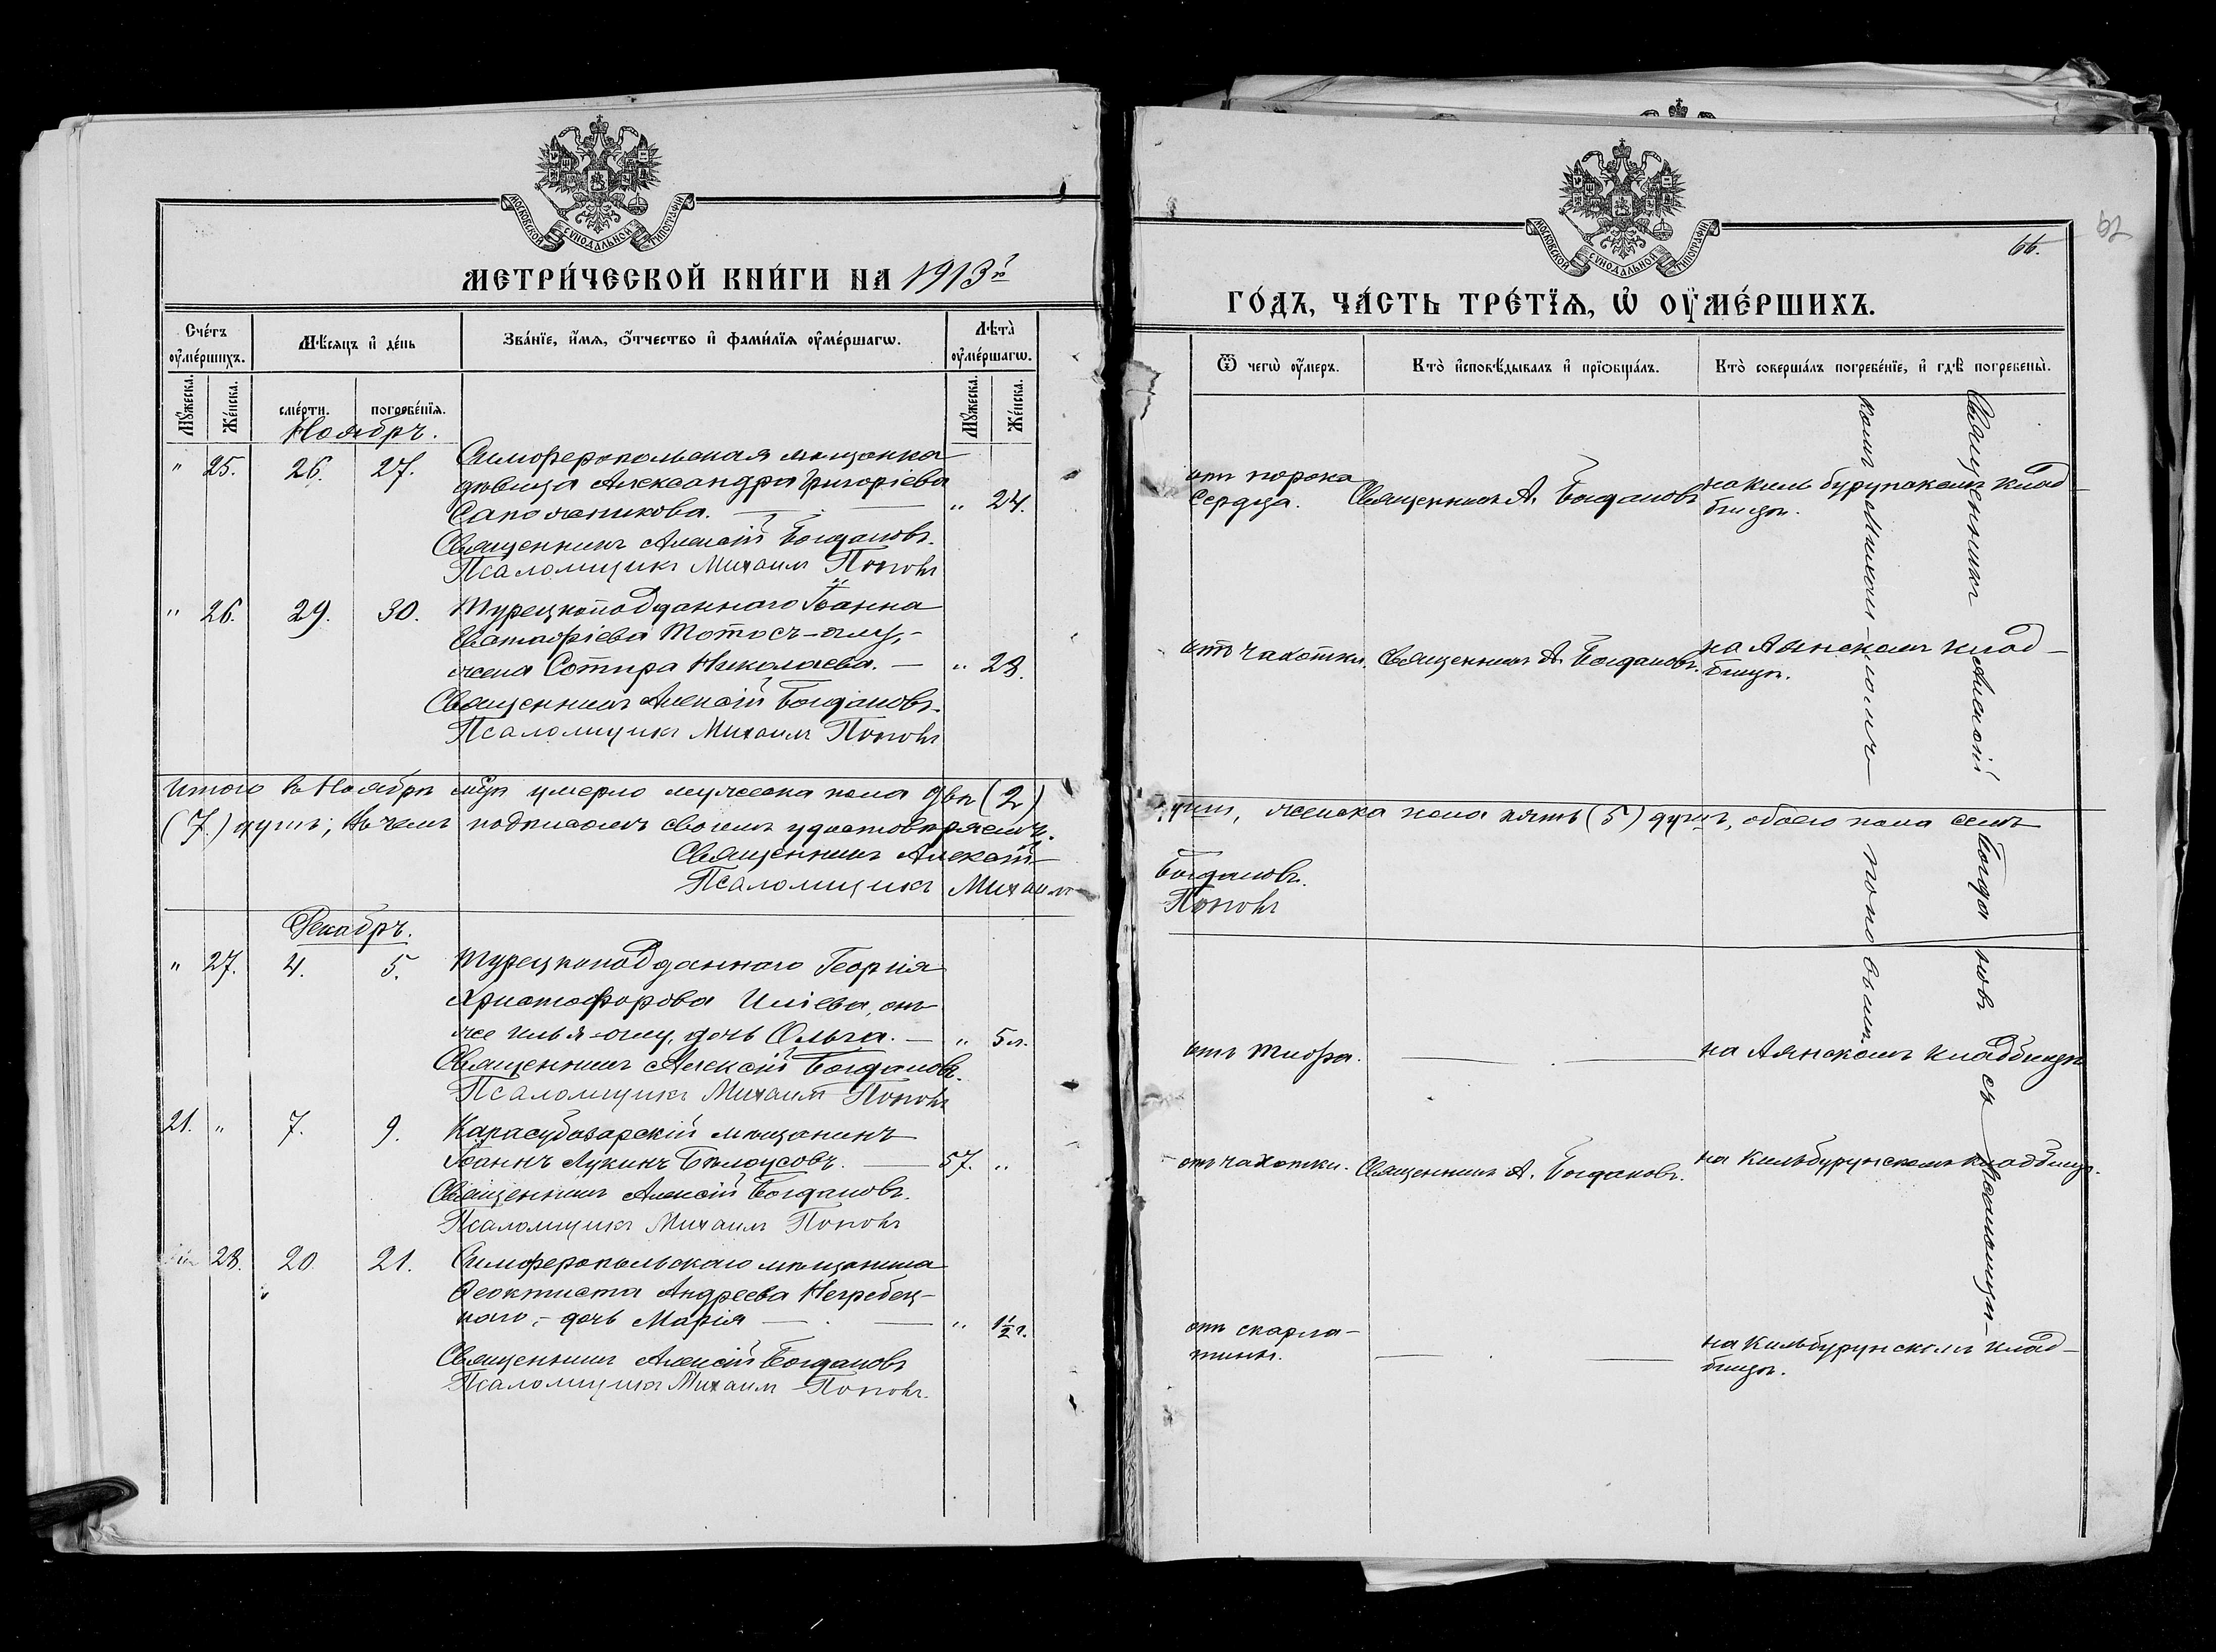 МОСКОВСКОЙ СѴНОДАЛЬНОЙ ТИПОГРАФІИ
МЕТРИ́ЧЕСКОЙ КНИ́ГИ НА 1913 г.
Сче́тъ ᲂу҆ме́ршихъ.
Мѣ́сяцъ и҆ де́нь
Зва́нїе, и҆́мя, ѻ҆́тчество и҆ фами́лїя ᲂу҆ме́ршагѡ.
Лѣта̀ ᲂу҆ме́ршагѡ.
Мꙋ́жеска.
Же́нска.
сме́рти.
погребе́нїя.
Мꙋ́жеска.
Же́нска.
Ноябрь.
" 25. 26. 27. Симферопольская мѣщанка
дѣвица Александра Григоріева
Сапожникова. — " 24.
Священникъ Алексій Богдановъ.
Псаломщикъ Михаилъ Поповъ
" 26. 29. 30. Турецкоподданнаго Іоанна
Евстафіева Тотосъ-оглу,-
жена Сотира Николаева. — " 28.
Священникъ Алексій Богдановъ.
Псаломщикъ Михаилъ Поповъ
Итого въ Ноябрѣ мцѣ умерло мужеска пола двѣ (2)
(7) душъ, въ чемъ подписомъ своимъ удостовѣряемъ.
Священникъ Алексій
Псаломщикъ Михаилъ
Декабрь.
" 27. 4. 5. Турецкоподданнаго Георгія
Христофорова Иліева, онъ
же Илья-оглу, дочь Ольга. — " 5 л.
Священникъ Алексій Богдановъ.
Псаломщикъ Михаилъ Поповъ
21. " 7. 9. Карасубазарскій мѣщанинъ
Іоаннъ Лукинъ Бѣлоусовъ. — 57. "
Священникъ Алексій Богдановъ.
Псаломщикъ Михаилъ Поповъ
28. 20. 21. Симферопольскаго мѣщанина
Ѳеоктиста Андреева Негребец-
каго,- дочь Марія — " 1½ г.
Священникъ Алексій Богдановъ
Псаломщикъ Михаилъ Поповъ.
МОСКОВСКОЙ СѴНОДАЛЬНОЙ ТИПОГРАФІИ
66.
ГО́ДЪ, ЧА́СТЬ ТРЕ́ТЇѦ, Ѡ҆ ОУ҆МЕ́РШИХЪ.
Ѿ чегѡ̀ ᲂу҆́меръ.
Кто̀ и҆сповѣ́дывалъ и҆ прїѻбща́лъ.
Кто̀ соверша́лъ погребе́нїе, и҆ гдѣ̀ погребены̀.
отъ порока
сердца. Священникъ А. Богдановъ на Кильбурунскомъ клад-
бищѣ.
отъ чахотки. Священникъ А. Богдановъ. на Аянскомъ клад-
бищѣ.
душъ, женска пола пять (5) душъ, обоего пола семь
Богдановъ.
Поповъ
отъ тифа. — на Аянскомъ кладбищѣ
отъ чахотки. Священникъ А. Богдановъ. на Кильбурунскомъ кладбищѣ.
отъ скарла-
тины. — на Кильбурунскомъ клад-
бищѣ.
Священникъ Алексій Богдановъ съ псаломщи-
комъ Михаиломъ Поповымъ.